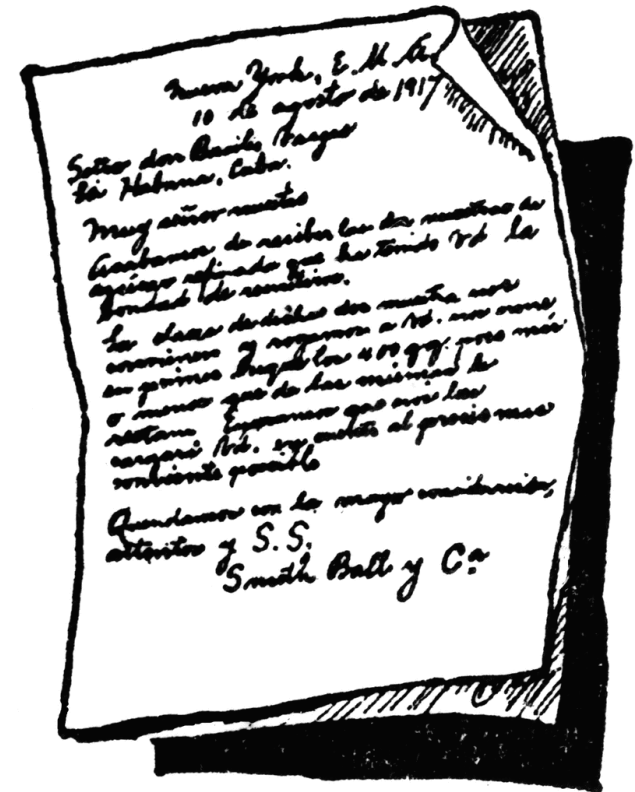 Nueva York, E. U. A.
10 de agosto de 1917
Señor don Basilio Vargas
La Habana, Cuba.
Muy señor nuestro
Acabamos de recibir las dos muestras de
azúcar refinado que ha tenido Vd la
bondad de remitirnos.
La clase de dichas dos muestras nos
convienen y rogamos a Vd. nos
en primer lugar los 400 qq. poco más
o menos que de las mismas le
restan. Esperamos que nos las
cargará Vd. en cuenta al precio más
conveniente posible
Quedamos con la mayor consideración,
atentos y S. S.
Smith Ball y Cª